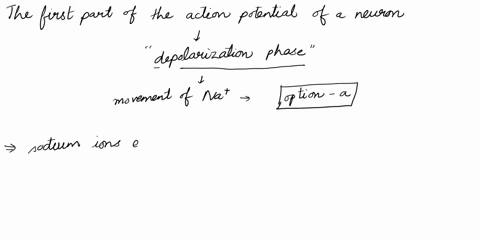 The first part of the action potential of a neuron
↓
"depolarization phase"
↓
movement of Na⁺ → option - a
⇒ sodium ions e